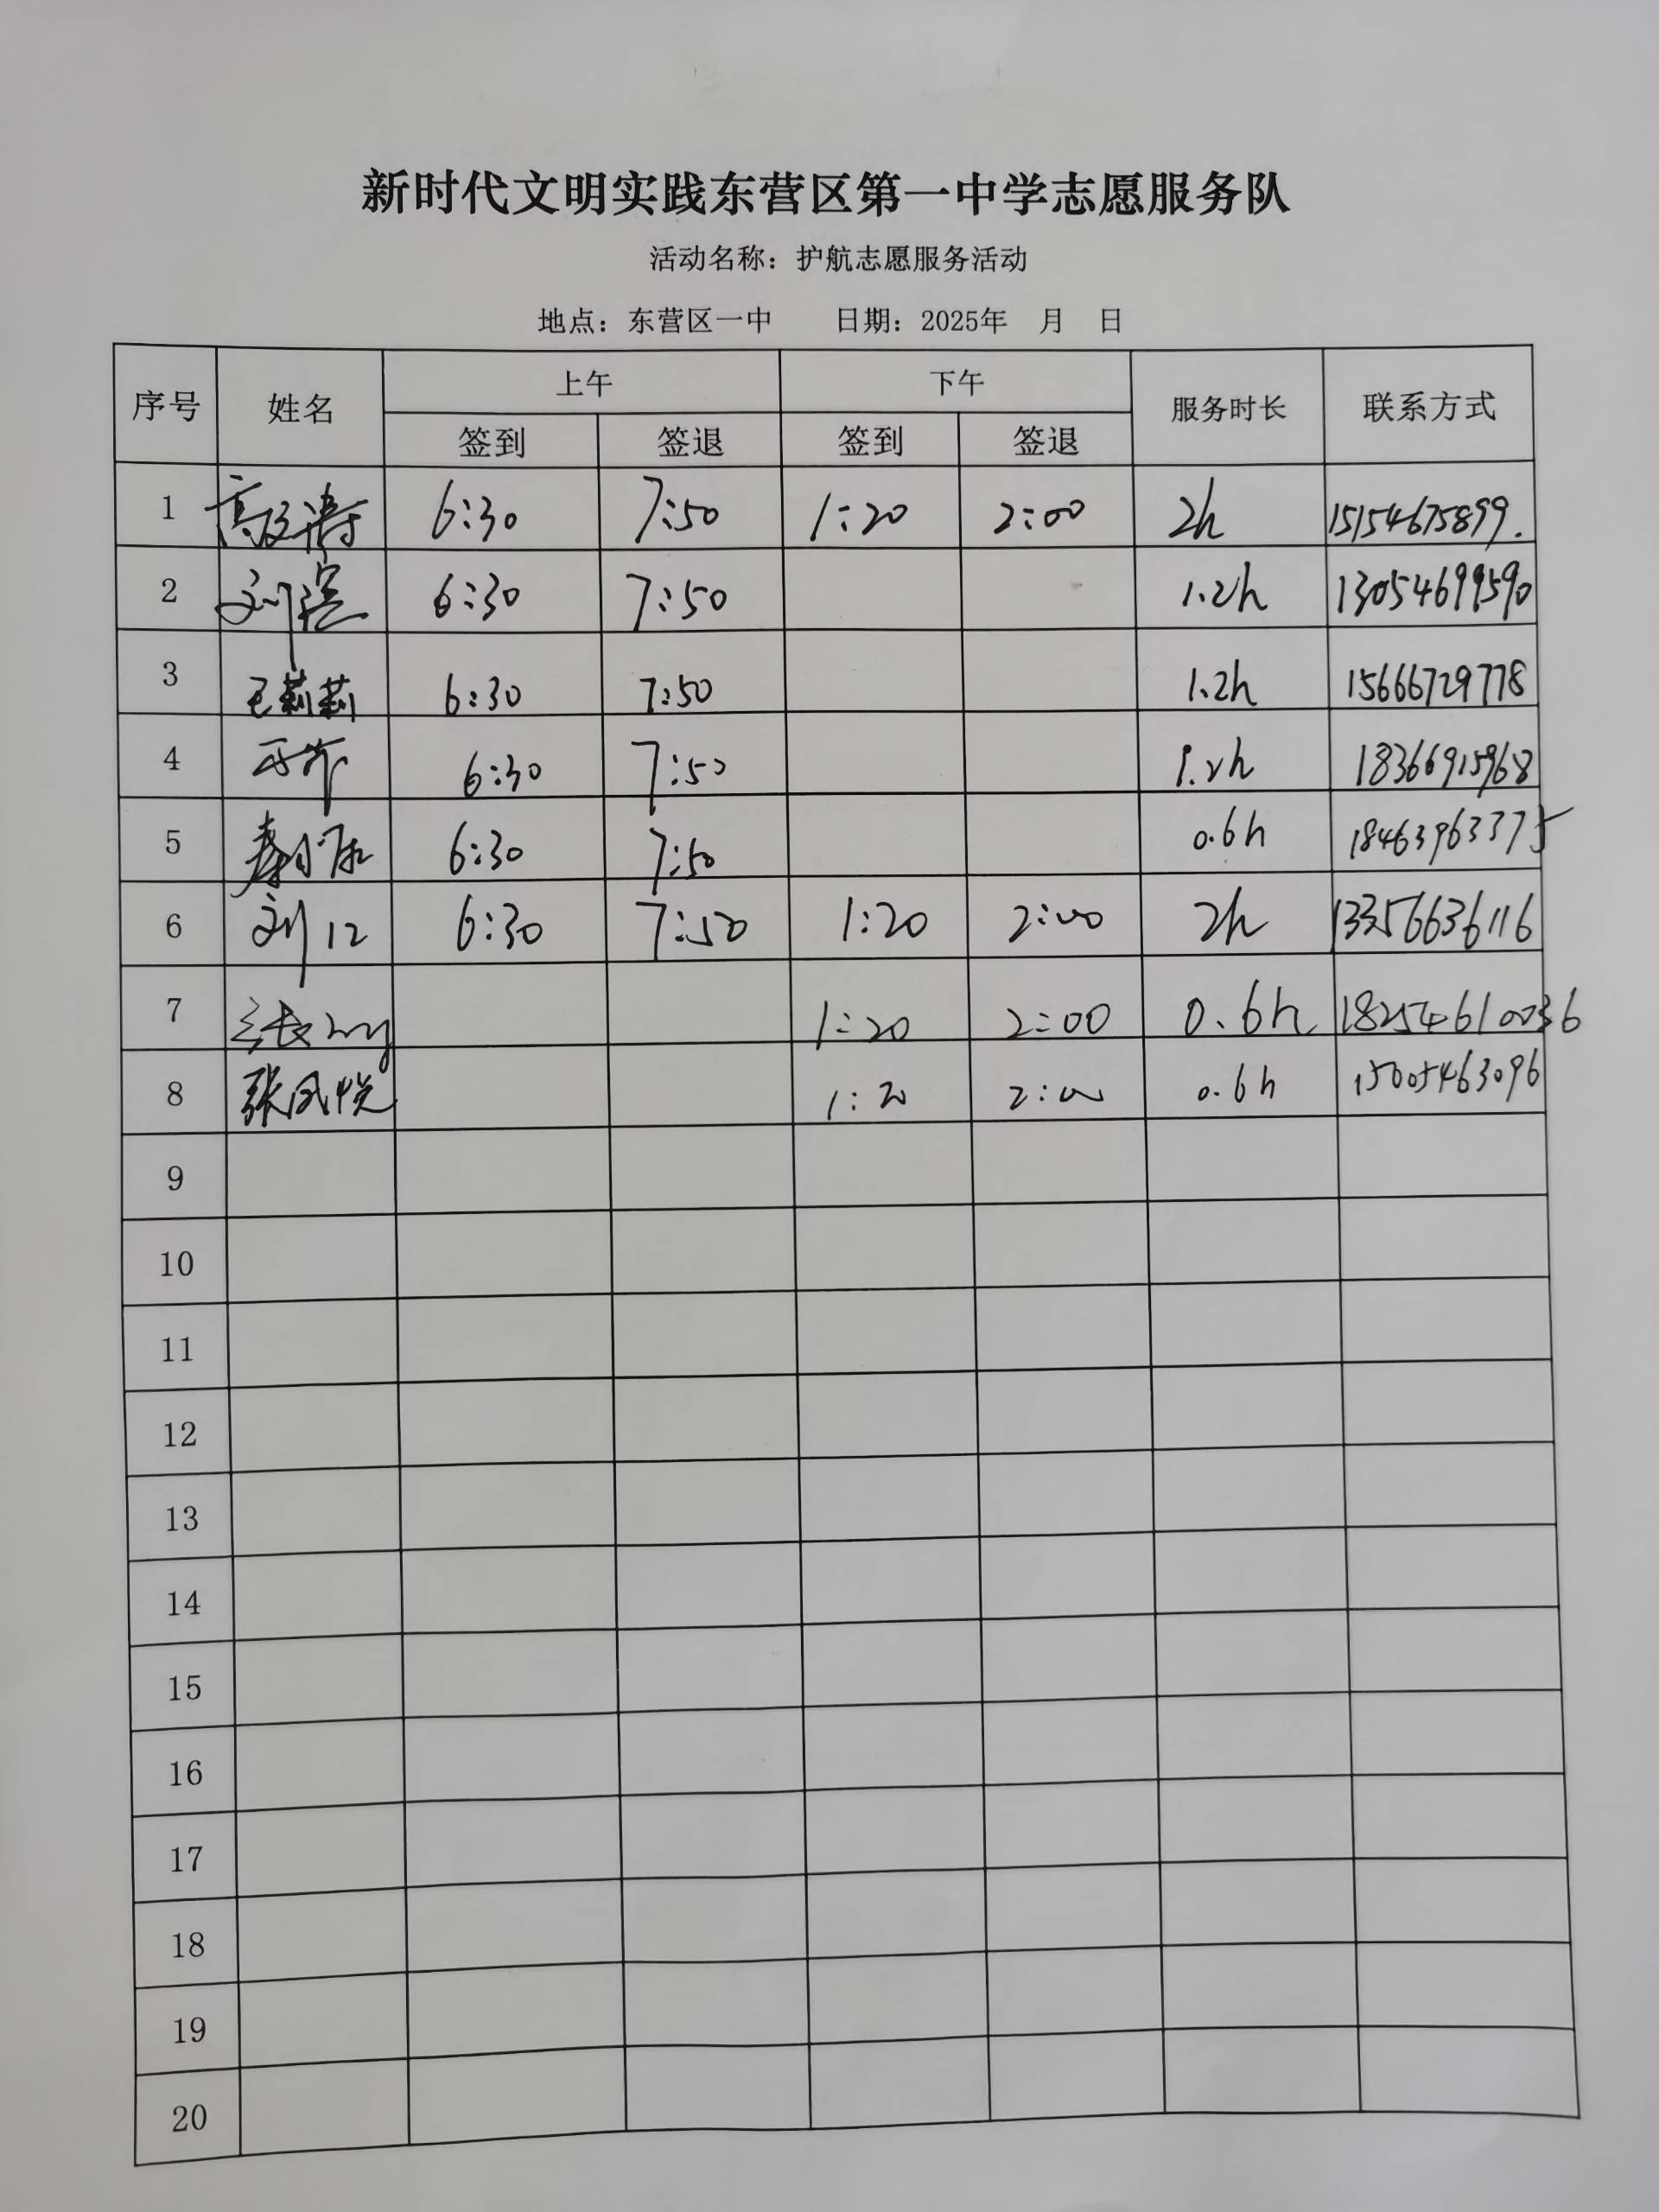 新时代文明实践东营区第一中学志愿服务队
活动名称：护航志愿服务活动
地点：东营区一中 日期：2025年 月 日
序号 姓名 上午 下午 服务时长 联系方式
签到 签退 签到 签退
1 6:30 7:50 1:20 2:00 2h 15154675899.
2 刘滨 6:30 7:50 1.2h 13054699590
3 王莉莉 6:30 7:50 1.2h 15666729778
4 6:30 7:50 1.2h 18366915968
5 6:30 7:50 0.6h 18463963375
6 6:30 7:50 1:20 2:00 2h 13356636116
7 1:20 2:00 0.6h 18254610036
8 张凤悦 1:20 2:00 0.6h 15005463096
9
10
11
12
13
14
15
16
17
18
19
20